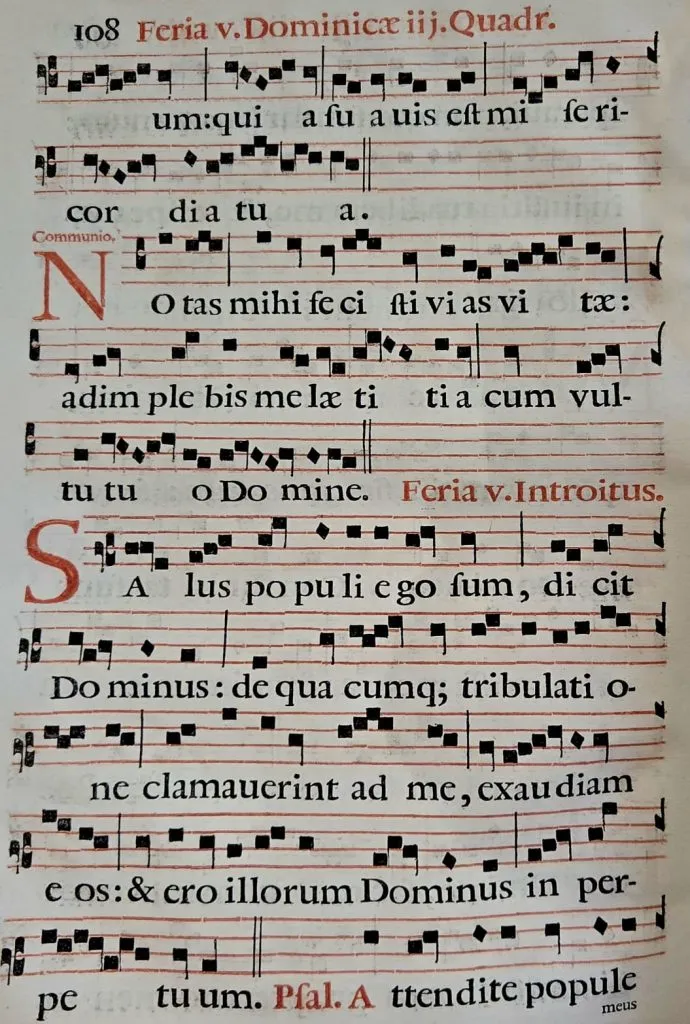 108 Feria v. Dominicæ iij. Quadr.
um: qui a ſu a uis eſt mi ſe ri-
cor di a tu a.
Communio.
NO tas mihi fe ci ſti vi as vi tæ:
adim ple bis me læ ti ti a cum vul-
tu tu o Do mine. Feria v. Introitus.
SA lus po pu li e go ſum, di cit
Do minus: de qua cumq; tribulati o-
ne clamauerint ad me, exau diam
e os: & ero illorum Dominus in per-
pe tu um. Pſal. A ttendite popule
meus